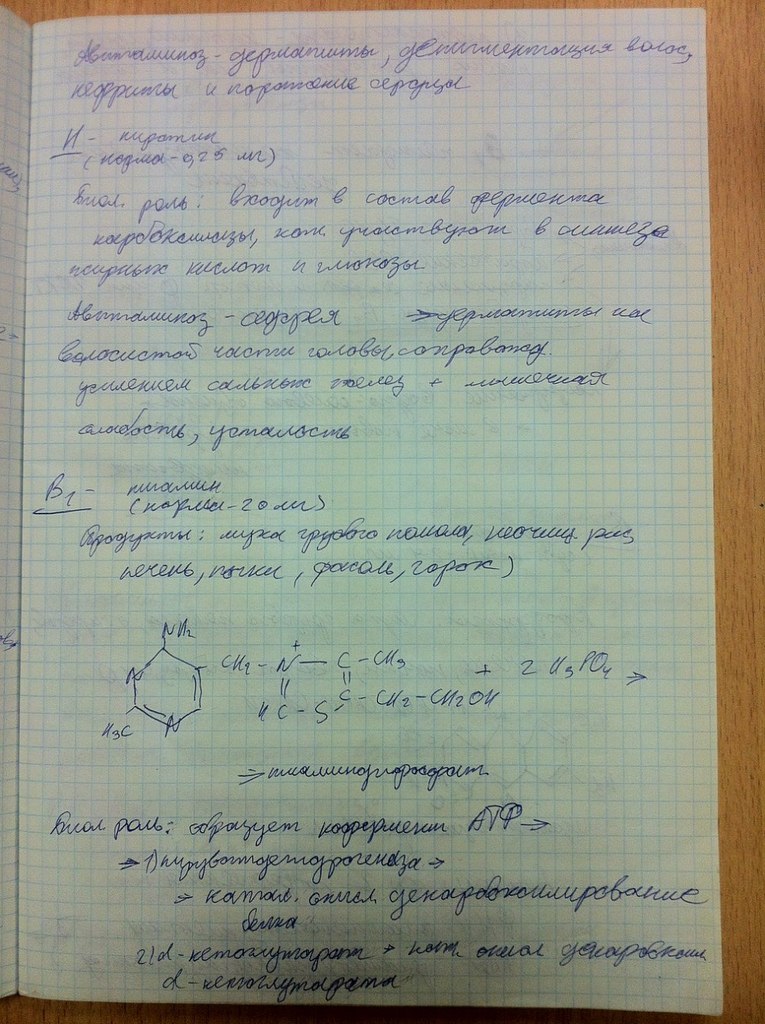 Авитаминоз - дерматиты, депигментация волос,
нефриты и поражение сердца
H -
(норма - 0,25 мг)
Биол. роль: входит в состав фермента
карбоксилазы, кот. участвуют в синтезе
жирных кислот и глюкозы
Авитаминоз - себорея => дерматиты на
волосистой части головы, сопровожд.
усилением сальных желез + мышечная
слабость, усталость
B1 - тиамин
(норма - 20 мг)
Продукты: мука грубого помола, неочищ рис,
печень, почки, фасоль, горох)
NH2
N CH2 - N+ - C - CH3 + 2 H3PO4 =>
HC - S C - CH2 - CH2OH
H3C N
=> тиаминдифосфат
Биол роль: образует кофермент =>
=> 1) пируватдегидрогеназа =>
=> катал. окисл. декарбоксилирование
белка
2) α-кетоглутарат => кат. окисл декарбоксил
α-кетоглутарата